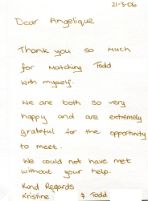 21-3-06
Dear Angelique
Thank you so much
for Matching Todd
with myself.
We are both so very
happy and are extremely
grateful for the opportunity
to meet.
We could not have met
without your help.
Kind Regards
Kristine & Todd